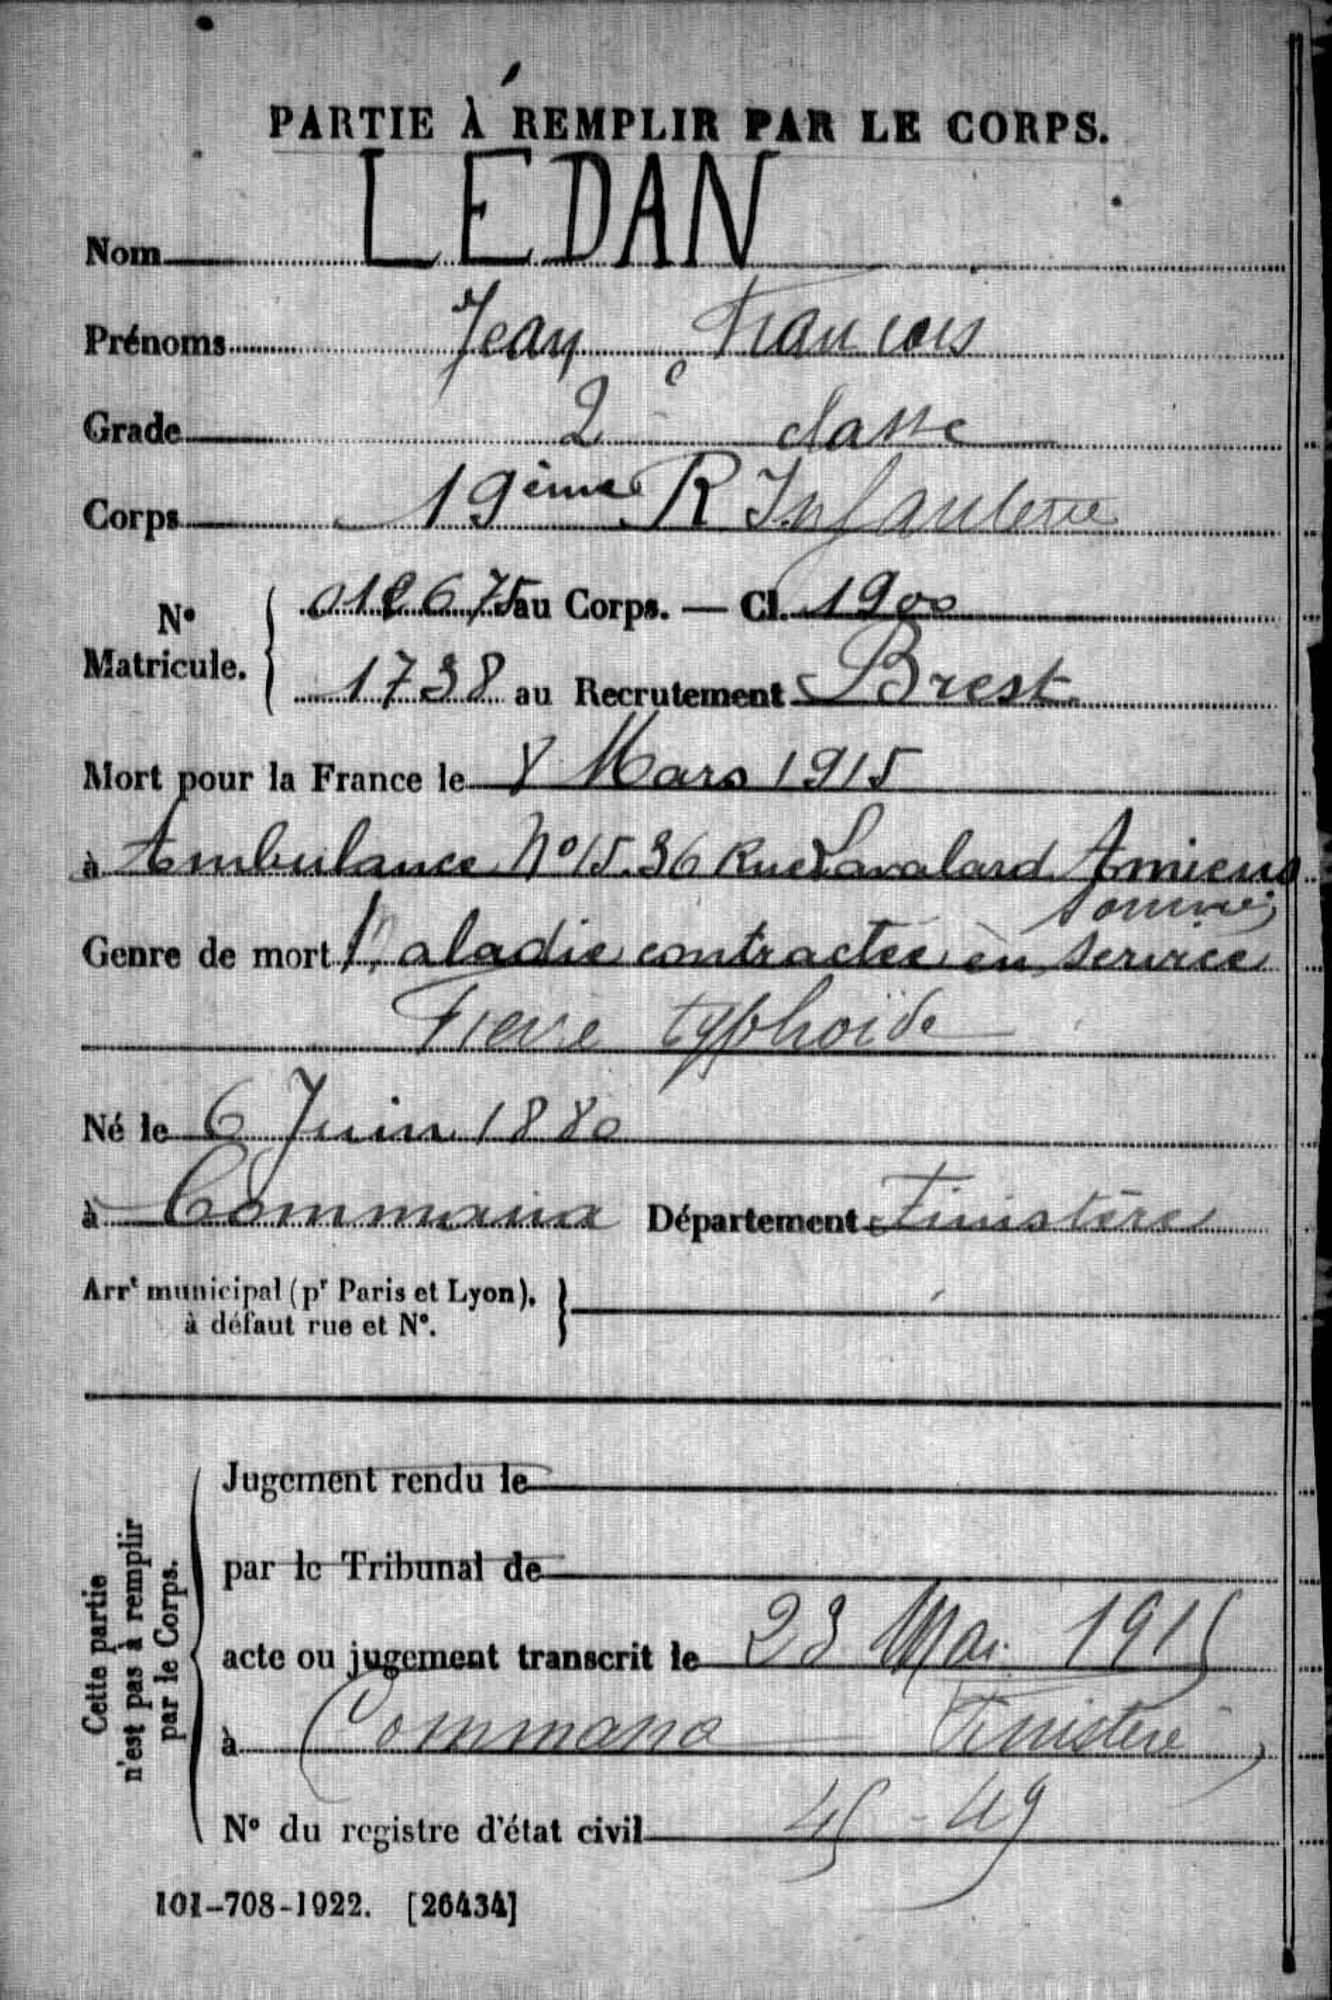 PARTIE À REMPLIR PAR LE CORPS.
Nom LE DAN
Prénoms Jean François
Grade 2e classe
Corps 19ème R Infanterie
No Matricule. 012675 au Corps. — Cl. 1900
1738 au Recrutement Brest
Mort pour la France le 8 Mars 1915
à Ambulance No 15. 36 Rue Lavalard Amiens
Somme
Genre de mort Maladie contractée en service
Fievre typhoïde
Né le 6 Juin 1880
à Commana Département Finistère
Arrt municipal (pr Paris et Lyon),
à défaut rue et No.
Cette partie
n'est pas à remplir
par le Corps.
Jugement rendu le
par le Tribunal de
acte ou jugement transcrit le 23 Mai 1915
à Commana Finistère
No du registre d'état civil 45-49
101-708-1922. [26434]